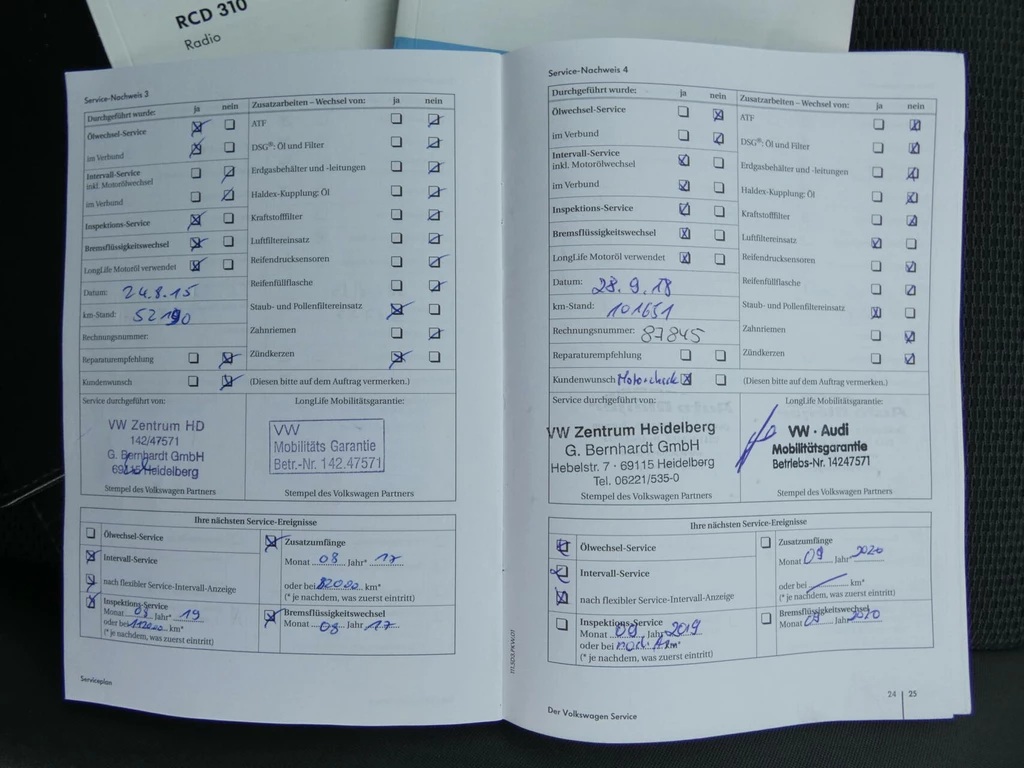 RCD 310
Radio
Service-Nachweis 3
Durchgeführt wurde: ja nein
Ölwechsel-Service
im Verbund
Intervall-Service
inkl. Motorölwechsel
im Verbund
Inspektions-Service
Bremsflüssigkeitswechsel
LongLife Motoröl verwendet
Datum: 24.8.15
km-Stand: 52190
Rechnungsnummer:
Reparaturempfehlung
Kundenwunsch
Zusatzarbeiten – Wechsel von: ja nein
ATF
DSG®: Öl und Filter
Erdgasbehälter und -leitungen
Haldex-Kupplung: Öl
Kraftstofffilter
Luftfiltereinsatz
Reifendrucksensoren
Reifenfüllflasche
Staub- und Pollenfiltereinsatz
Zahnriemen
Zündkerzen
(Diesen bitte auf dem Auftrag vermerken.)
Service durchgeführt von:
VW Zentrum HD
142/47571
G. Bernhardt GmbH
69115 Heidelberg
Stempel des Volkswagen Partners
LongLife Mobilitätsgarantie:
VW
Mobilitäts Garantie
Betr.-Nr. 142.47571
Stempel des Volkswagen Partners
Ihre nächsten Service-Ereignisse
Ölwechsel-Service
Intervall-Service
nach flexibler Service-Intervall-Anzeige
Inspektions-Service
Monat 08 Jahr* 19
oder bei 112000 km*
(* je nachdem, was zuerst eintritt)
Zusatzumfänge
Monat 08 Jahr* 17
oder bei 82000 km*
(* je nachdem, was zuerst eintritt)
Bremsflüssigkeitswechsel
Monat 08 Jahr 17
Serviceplan
Service-Nachweis 4
Durchgeführt wurde: ja nein
Ölwechsel-Service
im Verbund
Intervall-Service
inkl. Motorölwechsel
im Verbund
Inspektions-Service
Bremsflüssigkeitswechsel
LongLife Motoröl verwendet
Datum: 28.9.18
km-Stand: 101651
Rechnungsnummer: 87845
Reparaturempfehlung
Kundenwunsch Motorcheck
Zusatzarbeiten – Wechsel von: ja nein
ATF
DSG®: Öl und Filter
Erdgasbehälter und -leitungen
Haldex-Kupplung: Öl
Kraftstofffilter
Luftfiltereinsatz
Reifendrucksensoren
Reifenfüllflasche
Staub- und Pollenfiltereinsatz
Zahnriemen
Zündkerzen
(Diesen bitte auf dem Auftrag vermerken.)
Service durchgeführt von:
VW Zentrum Heidelberg
G. Bernhardt GmbH
Hebelstr. 7 · 69115 Heidelberg
Tel. 06221/535-0
Stempel des Volkswagen Partners
LongLife Mobilitätsgarantie:
VW · Audi
Mobilitätsgarantie
Betriebs-Nr. 14247571
Stempel des Volkswagen Partners
Ihre nächsten Service-Ereignisse
Ölwechsel-Service
Intervall-Service
nach flexibler Service-Intervall-Anzeige
Inspektions-Service
Monat 09 Jahr 2019
oder bei km*
(* je nachdem, was zuerst eintritt)
Zusatzumfänge
Monat 09 Jahr 2020
oder bei km*
(* je nachdem, was zuerst eintritt)
Bremsflüssigkeitswechsel
Monat 09 Jahr 2020
Der Volkswagen Service
24 | 25